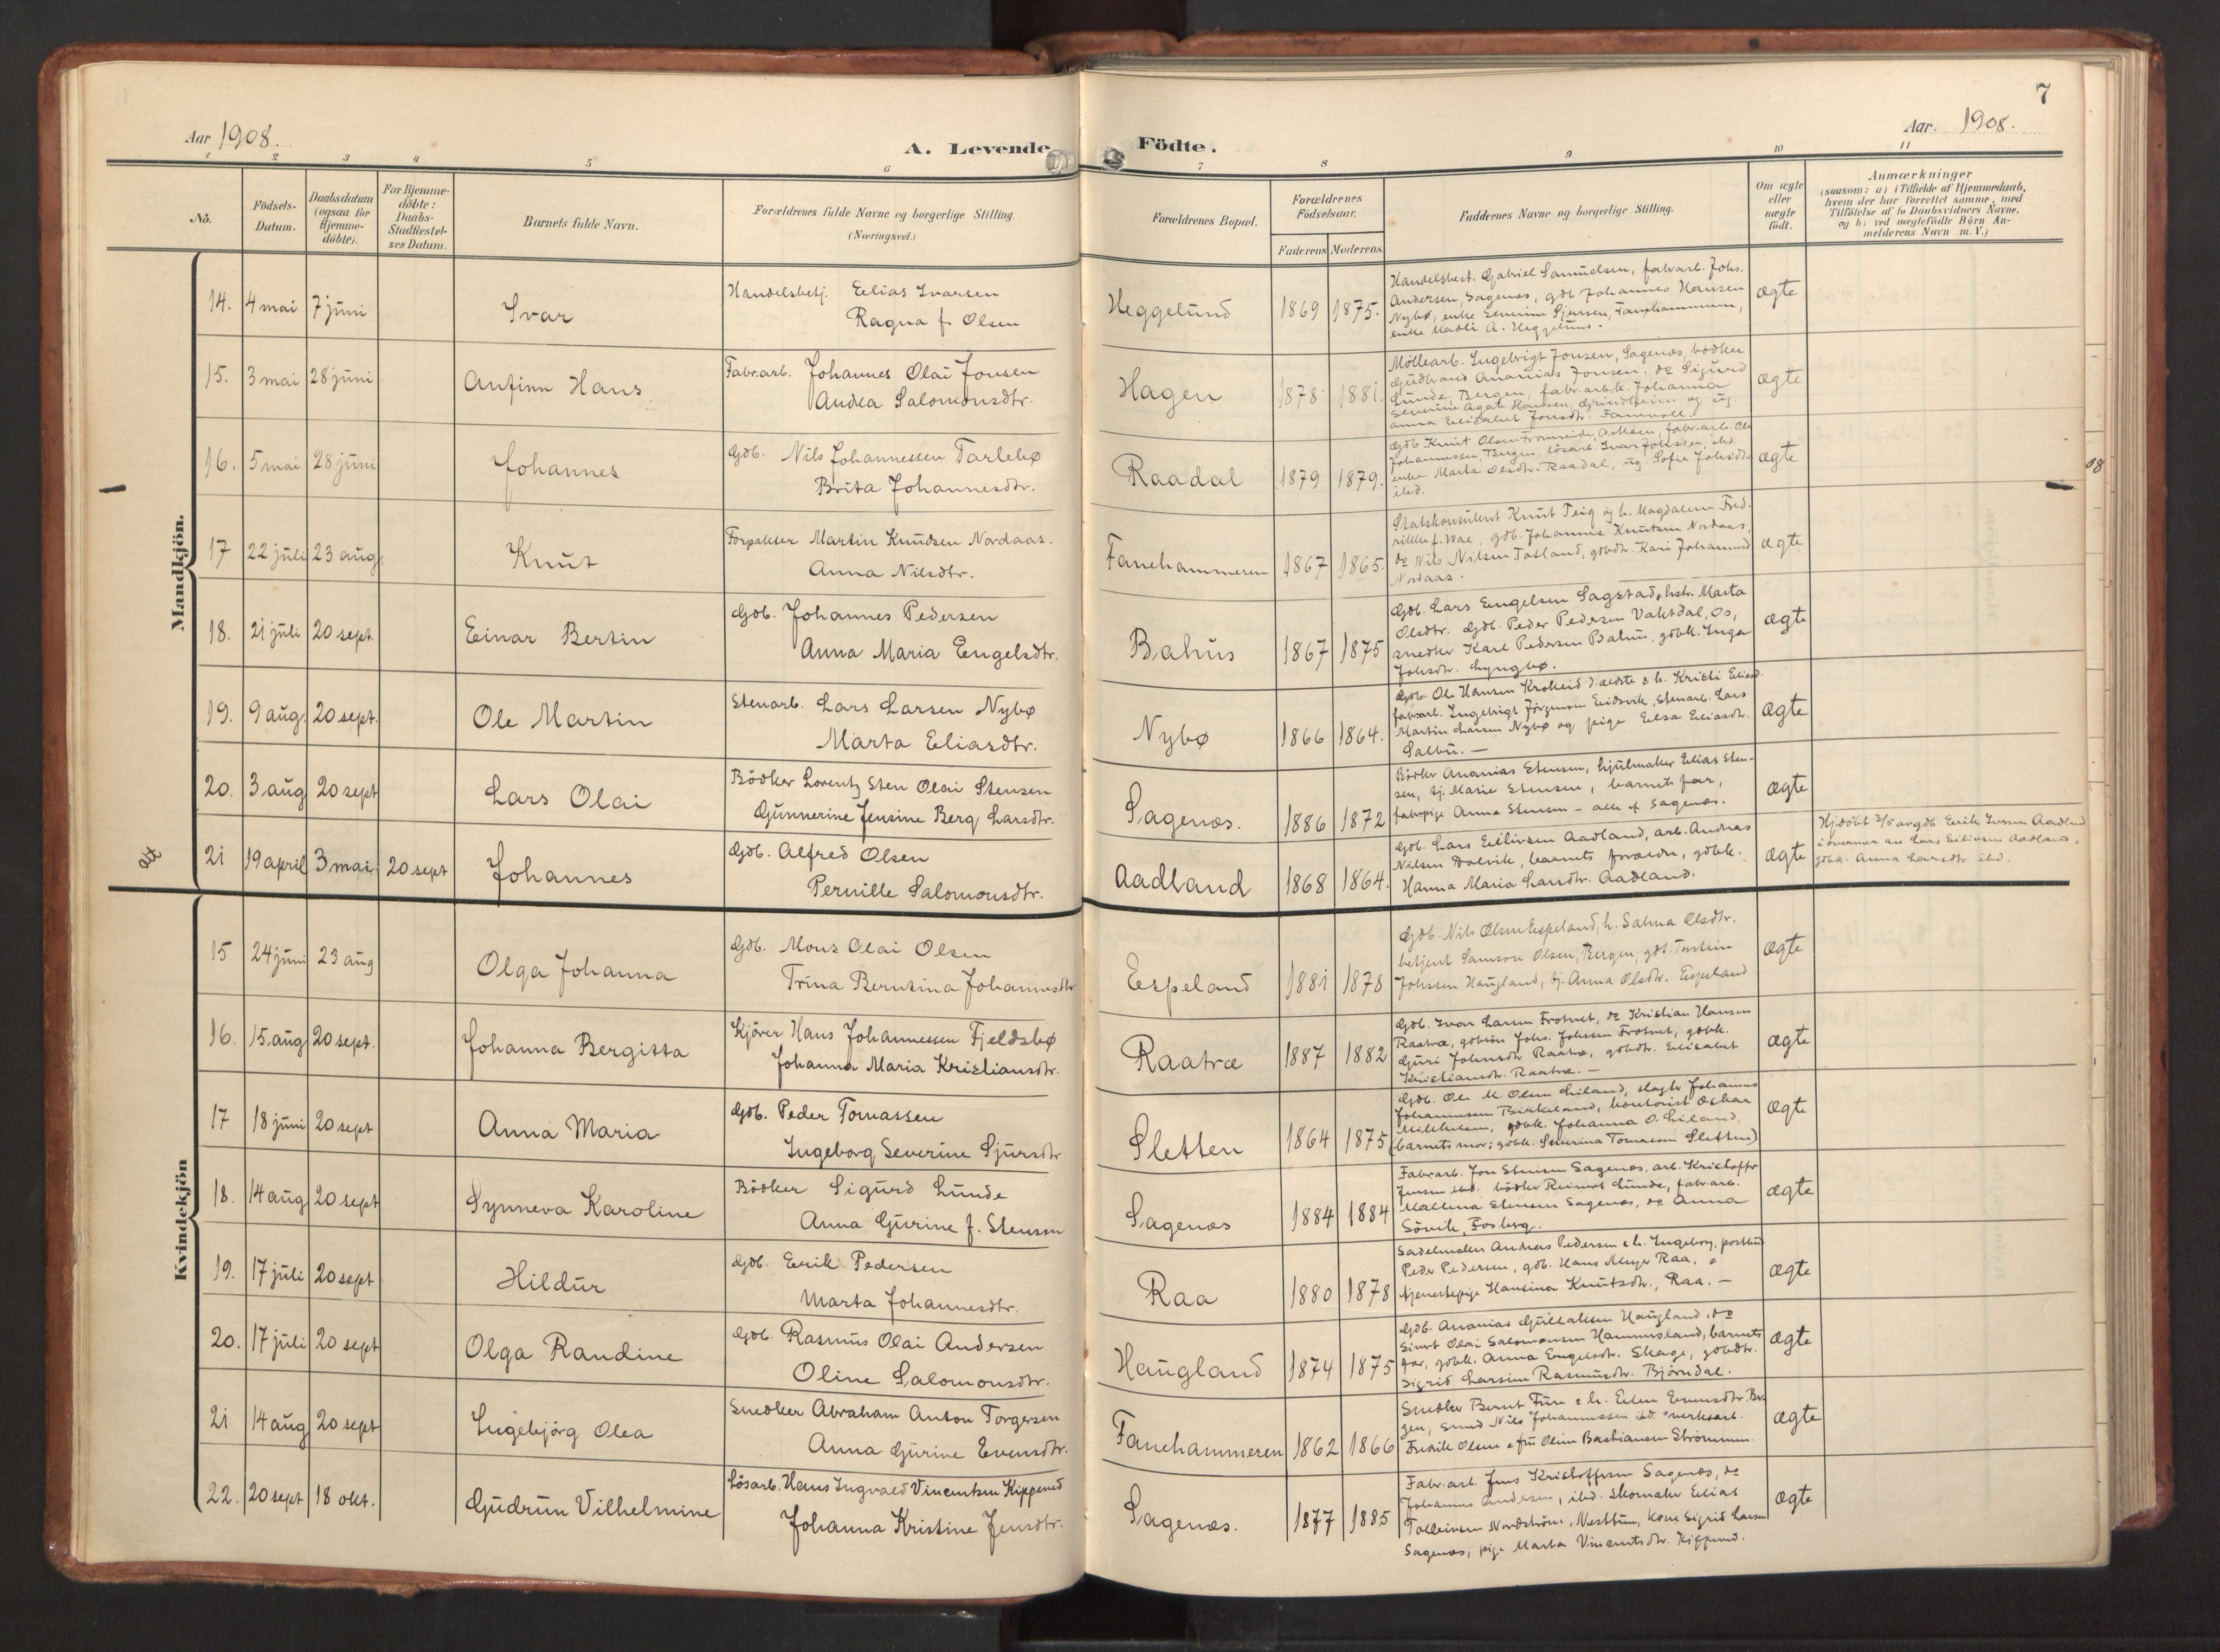 7
Aar 1908.
Aar. 1908.
A. Levende Födte.
1 2 3 4 5 6 7 8 9 10 11
No.
Födsels-
Datum.
Daabsdatum
(ogsaa for
Hjemme-
döbte).
For Hjemme-
döbte:
Daabs-
Stadfæstel-
ses Datum.
Barnets fulde Navn.
Forældrenes fulde Navne og borgerlige Stilling.
(Næringsvei.)
Forældrenes Bopæl.
Forældrenes
Födselsaar.
Faderens Moderens.
Faddernes Navne og borgerlige Stilling.
Om ægte
eller
uægte
födt.
Anmærkninger
(saasom: a) i Tilfælde af Hjemmedaab,
hvem der har forrettet samme, med
Tilföielse af to Daabsvidners Navne,
og b) ved uægtefödte Börn An-
melderens Navn m. V.)
Mandkjön.
14. 4 mai 7 juni Ivar
Handelsbetj. Elias Ivarsen
Ragna f. Olsen
Heggelund 1869 1875.
Handelsbest. Gabriel Samuelsen, fabrarb. Johs.
Andersen, Sagenæs, gdb Johannes Hansen
Nybø, enke Severine Sjursen, Fanehammeren,
enke A. Heggelund.
ægte
15. 3 mai 28 juni Anfinn Hans
Fabr.arb. Johannes Olai Jonsen
Andrea Salomonsdtr.
Hagen 1878 1881.
Möllearb. Ingebrigt Jonsen, Sagenæs, bödker
Gudbrand Ananias Jonsen, do Sigurd
Lunde, Bergen, fabr.arb.k. Johanna
Severine Agate Hansen, og ug.
Anna Elisabet Jonsdtr.
ægte
16. 5 mai 28 juni Johannes
Gdb. Nils Johannessen Tarlebø
Brita Johannesdtr.
Raadal 1879 1879.
Gdb Knut Olsen Askøen, fabr.arb. Ole
Johannessen, Bergen, lösarb. Ivar Johssen, ibd.
enke Marta Olsdtr. Raadal, ug. Sofie Johsdtr
ibd.
ægte
17 22 juli 23 aug. Knut
Forpakter Martin Knudsen Nordaas.
Anna Nilsdtr.
Fanehammeren 1867 1865.
Statskonsulent Knut Teig og h. Magdalene Fred-
rikke f. Wae, gdb. Johannes Knutsen Nordaas,
do Nils Nilsen Totland, gdbdtr. Kari Johannesd
Nordaas.
ægte
18. 21 juli 20 sept. Einar Bertin
Gdb. Johannes Pedersen
Anna Maria Engelsdtr.
Bahus 1867 1875
Gdb. Lars Engelsen Sagstad, hstr. Marta
Olsdtr. Gdb. Peder Pedersen Vaktdal, Os,
snedker Karl Pedersen Bahus, gdbk. Inga
Johsdtr. Lyngbø.
ægte
19. 9 aug. 20 sept. Ole Martin
Stenarb. Lars Larsen Nybø
Marta Eliasdtr.
Nybø 1866 1864.
Gdb. Ole Hansen Krokeid d. ældste & h. Kristi Eliasd.
fabrarb. Ingebrigt Jörgensen Eidsvik, stenarb. Lars
Martin Larsen Nybø og pige Elsa Eliasdtr.
Salbu. —
ægte
20. 3 aug 20 sept Lars Olai
Bödker Lorentz Sten Olai Stensen
Gunnerine Jensine Berg Larsdtr.
Sagenæs. 1886 1872
Bödker Ananias Stensen, hjulmaker Elias Sten-
sen, tj. Marie Stensen, barnets far,
fabrpige Anna Stensen – alle af Sagenæs.
ægte
21 19 april 3 mai 20 sept Johannes
Gdb. Alfred Olsen
Pernille Salomonsdtr.
Aadland 1868 1864.
Gdb. Lars Eilivsen Aadland, arb. Andreas
Nilsen Dolvik, barnets forældre, gdbk.
Hanna Maria Larsdtr. Aadland.
ægte
Hj.döbt 3/5 av gdb. Erik Aadland
i övernær av Lars Eilivsen Aadland &
gdbk. Anna Larsdtr. ibd.
Kvindekjön
15 24 juni 23 aug Olga Johanna
Gdb. Mons Olai Olsen
Trina Berntina Johannesdtr
Espeland 1881 1878
Gdb. Nils Olsen Espeland, h. Salma Olsdtr.
betjent Samson Olsen, Bergen, gdb. Torstein
Johssen Haugland, tj. Anna Olsdtr. Espeland
ægte
16. 15 aug 20 sept. Johanna Bergitta
Kjörer Hans Johannessen Fjeldsbø
Johanna Maria Kristiansdtr.
Raatræ 1887 1882
Gdb. Ivar Larsen Frotvet, do Kristian Hansen
Raatræ, gdbsön Johs. Johssen Frotvet, gdbk.
Guri Johnsdtr Raatræ, gdbdtr. Elisabet
Kristiansdtr. Raatræ. —
ægte
17 18 juni 20 sept Anna Maria
Gdb. Peder Tomassen
Ingeborg Severine Sjursdtr
Sletten 1864 1875
Gdb. Ole M. Olsen Liland, slagter Johannes
Johannessen Birkeland, kontorist Oskar
Mikkelsen, gdbk. Johanna O. Liland,
(barnets mor: gdbk. Severina Tomassen Sletten)
ægte
18. 14 aug 20 sept Synneva Karoline
Bödker Sigurd Lunde
Anna Gurine f. Stensen
Sagenæs 1884 1884
Fabrarb. Jon Stensen Sagenæs, arb. Kristoffer
Jensen ibd. bödker Reinert Lunde, fabrarb.
Mallena Stensen Sagenæs, do Anna
Sövik,
ægte
19. 17 juli 20 sept Hildur
Gdb. Erik Pedersen
Marta Johannesdtr.
Raa 1880 1878
Sadelmaker Andreas Pedersen & h. Ingeborg, postbud
Peder Pedersen, gdb. Hans Meyer Raa, &
tjenestepige Hansina Knutsdtr., Raa. —
ægte
20. 17 juli 20 sept Olga Randine
Gdb. Rasmus Olai Andersen
Oline Salomonsdtr.
Haugland 1874 1875
Gdb. Ananias Gullaksen Haugland, do
Sivert Olai Salomonsen Hammersland, barnets
far, gdbk. Anna Engelsdtr. Skage, gdbdtr.
Sigrid Larsine Rasmusdtr. Björndal.
ægte
21 14 aug 20 sept Ingebjörg Olea
Snedker Abraham Anton Torgersen
Anna Gurine Evensdtr.
Fanehammeren 1862 1866
Snedker Bernt Fure & h. Elen Evensdtr. Ber-
gen, smed Nils Johannessen ibd. verksarb.
Fredrik Olsen & fru Oline Bastiansen Strömmen.
ægte
22. 20 sept 18 okt. Gudrun Vilhelmine
Lösarb. Hans Ingvald Vincentsen Kippened
Johanna Kristine Jensdtr.
Sagenæs. 1877 1885
Fabr.arb. Jens Kristoffersen Sagenæs, do
Johannes Andersen, ibd. skomaker Elias
Tolleivsen Nordström, Nesttun, kone Sigrid Larsen
Sagenæs, pige Marta Vincentsdtr. Kippened.
ægte
08